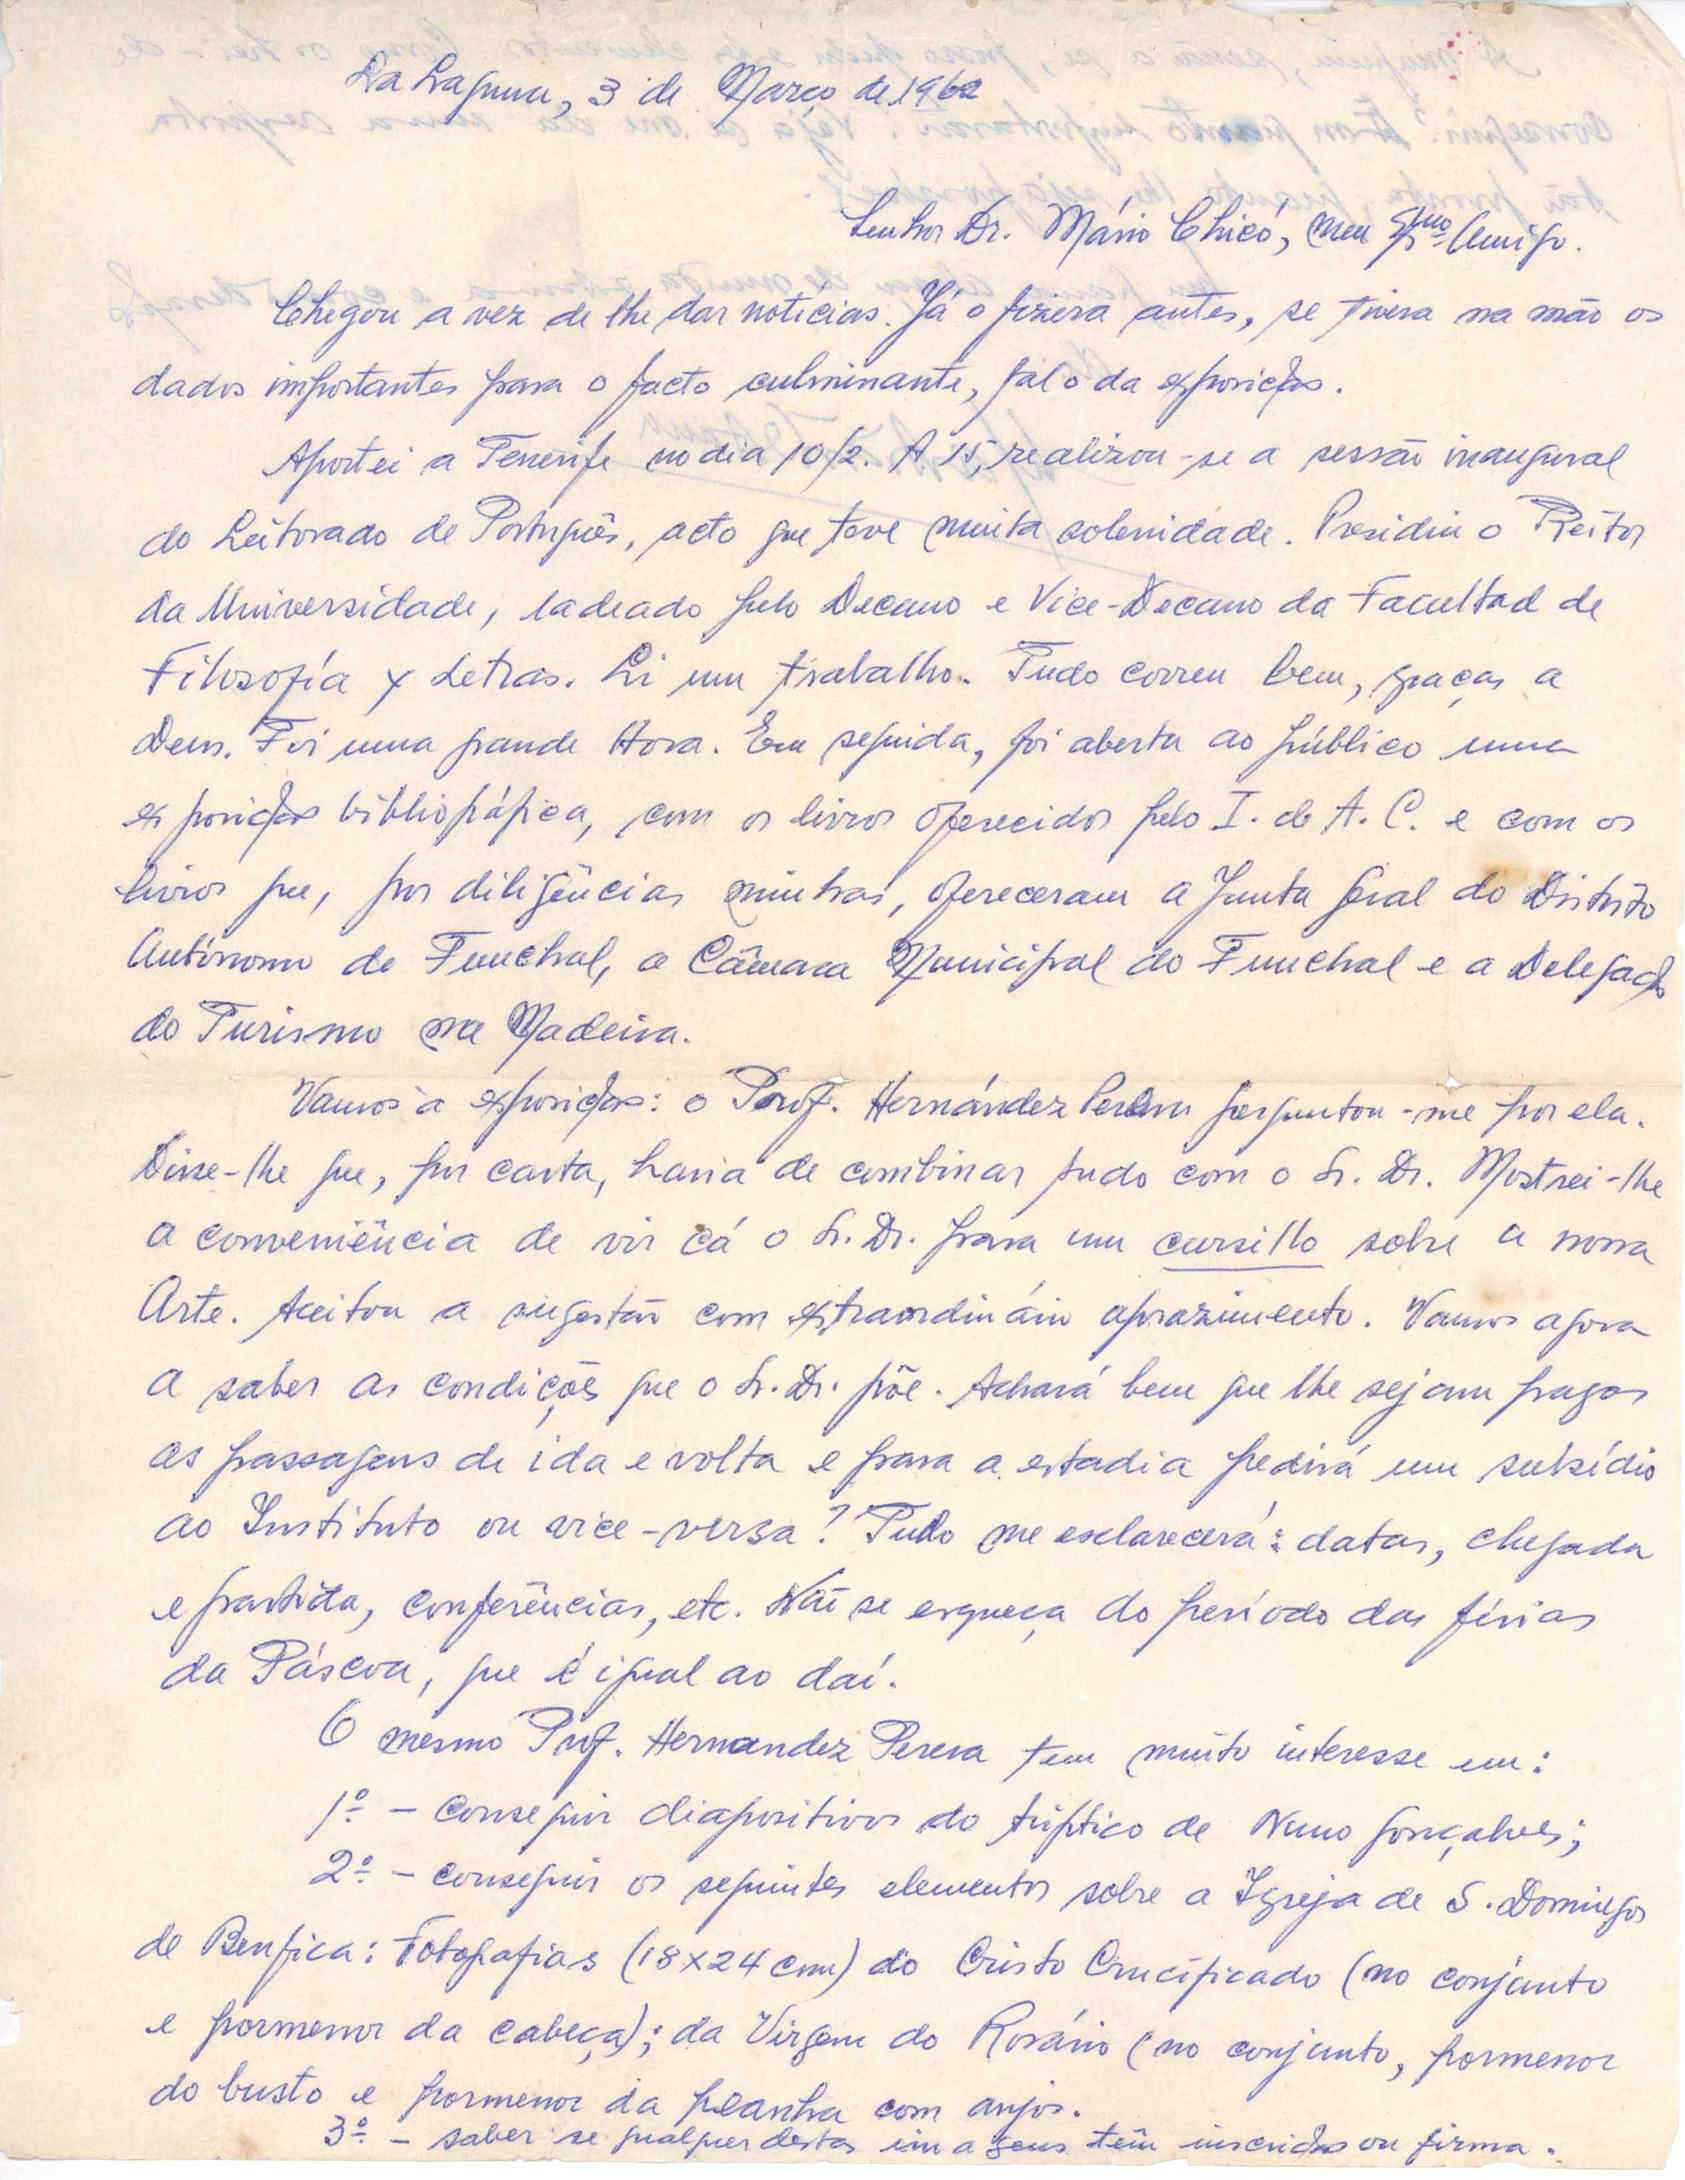 La Laguna, 3 de Março de 1962
Senhor Dr. Mário Chicó, meu Exmo Amigo.
Chegou a vez de lhe dar notícias. Já o fizera antes, se tivera na mão os
dados importantes para o facto culminante, qual o da exposição.
Aportei a Tenerife no dia 10/2. A 15, realizou-se a sessão inaugural
do Leitorado de Português, acto que teve muita solenidade. Presidiu o Reitor
da Universidade, ladeado pelo Decano e Vice-Decano da Facultad de
Filosofía y Letras. Li um trabalho. Tudo correu bem, graças a
Deus. Foi uma grande Hora. Em seguida, foi aberta ao público uma
exposição bibliográfica, com os livros oferecidos pelo I. de A. C. e com os
livros que, por diligências minhas, ofereceram a Junta Geral do Distrito
Autónomo do Funchal, a Câmara Municipal do Funchal e a Delegação
do Turismo na Madeira.
Vamos à exposição: o Prof. Hernández Perera perguntou-me por ela.
Disse-lhe que, por carta, havia de combinar tudo com o Sr. Dr. Mostrei-lhe
a conveniência de vir cá o Sr. Dr. para um cursillo sobre a nossa
Arte. Aceitou a sugestão com extraordinário aprazimento. Vamos agora
a saber as condições que o Sr. Dr. põe. Achará bem que lhe sejam pagas
as passagens de ida e volta e para a estadia pedirá um subsídio
ao Instituto ou vice-versa? Tudo me esclarecerá: datas, chegada
e partida, conferências, etc. Não se esqueça do período das férias
da Páscoa, que é igual ao daí.
O mesmo Prof. Hernandez Perera tem muito interesse em:
1º - Conseguir diapositivos do tríptico de Nuno Gonçalves;
2º - conseguir os seguintes elementos sobre a Igreja de S. Domingos
de Benfica: Fotografias (18x24 cm) do Cristo Crucificado (no conjunto
e pormenor da cabeça); da Virgem do Rosário (no conjunto, pormenor
do busto e pormenor da peanha com anjos.
3º - saber se qualquer destas imagens têm inscrição ou firma.